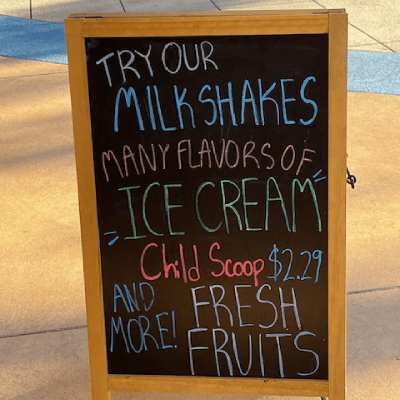 TRY OUR
MILKSHAKES
MANY FLAVORS OF
ICE CREAM
Child Scoop $2.29
AND MORE!
FRESH FRUITS